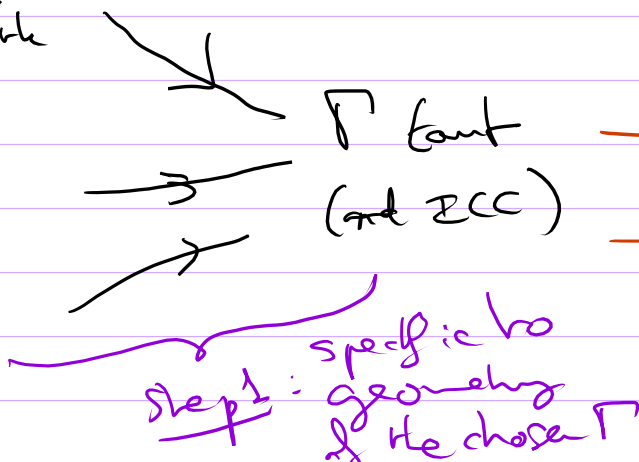 Γ taut
(and ICC)
step 1 : specific to
geometry
of the chosen Γ